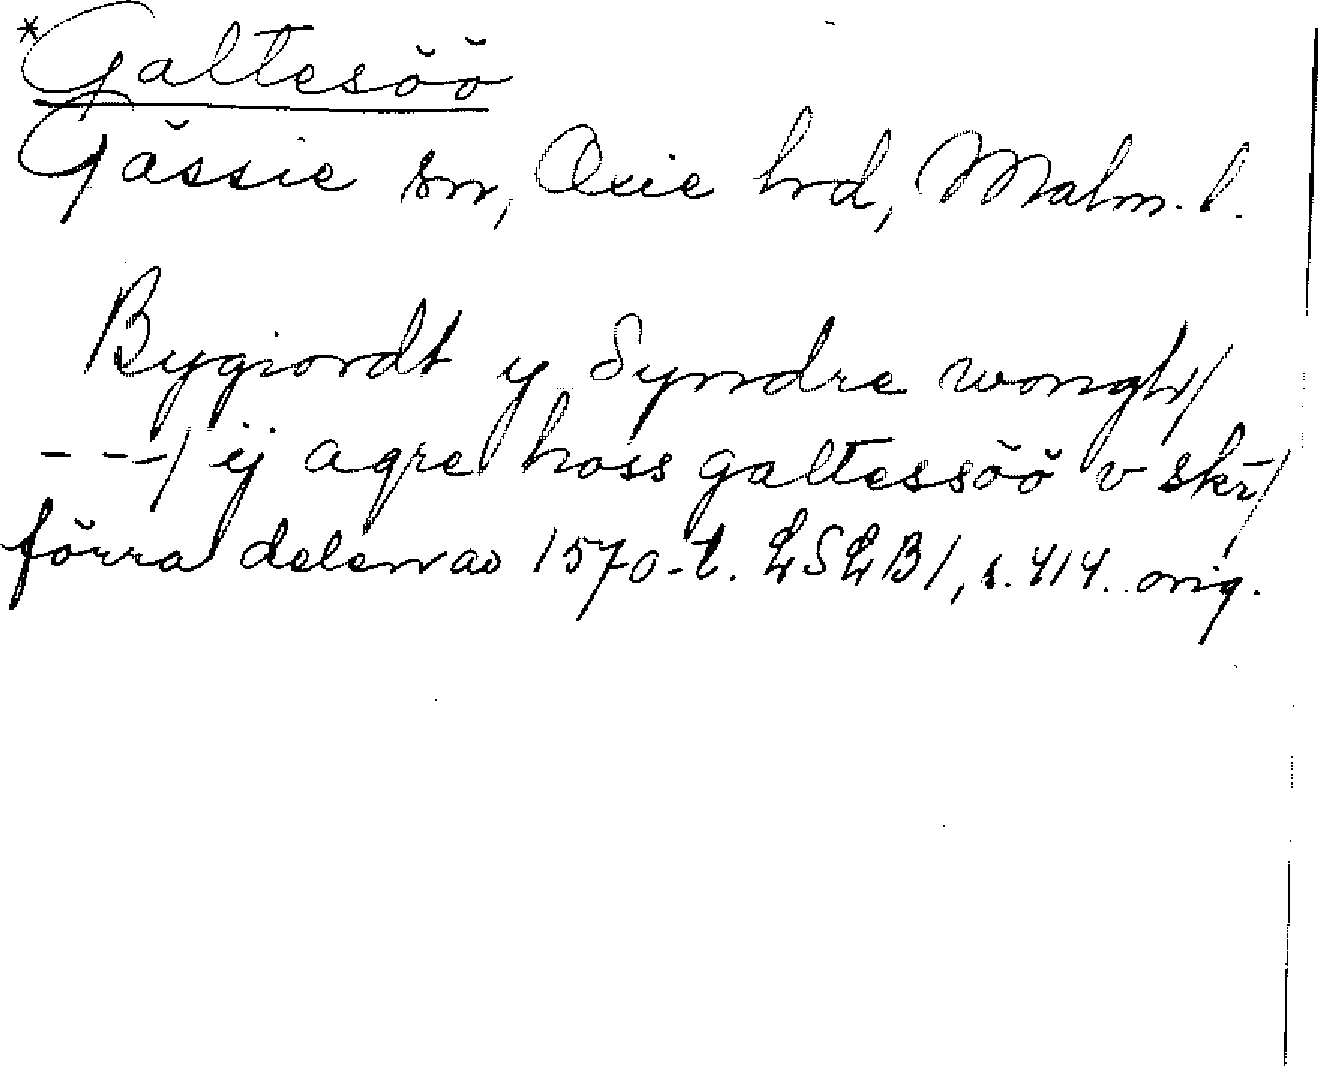 *Galtesöö
Gässie sn, Oxie hrd, Malm. l.
Bygiordt y Syndre wongh/
---/ ij agre hoss galtessöö v skr/
förra delen av 1570-t. LSLB1, s. 414. orig.